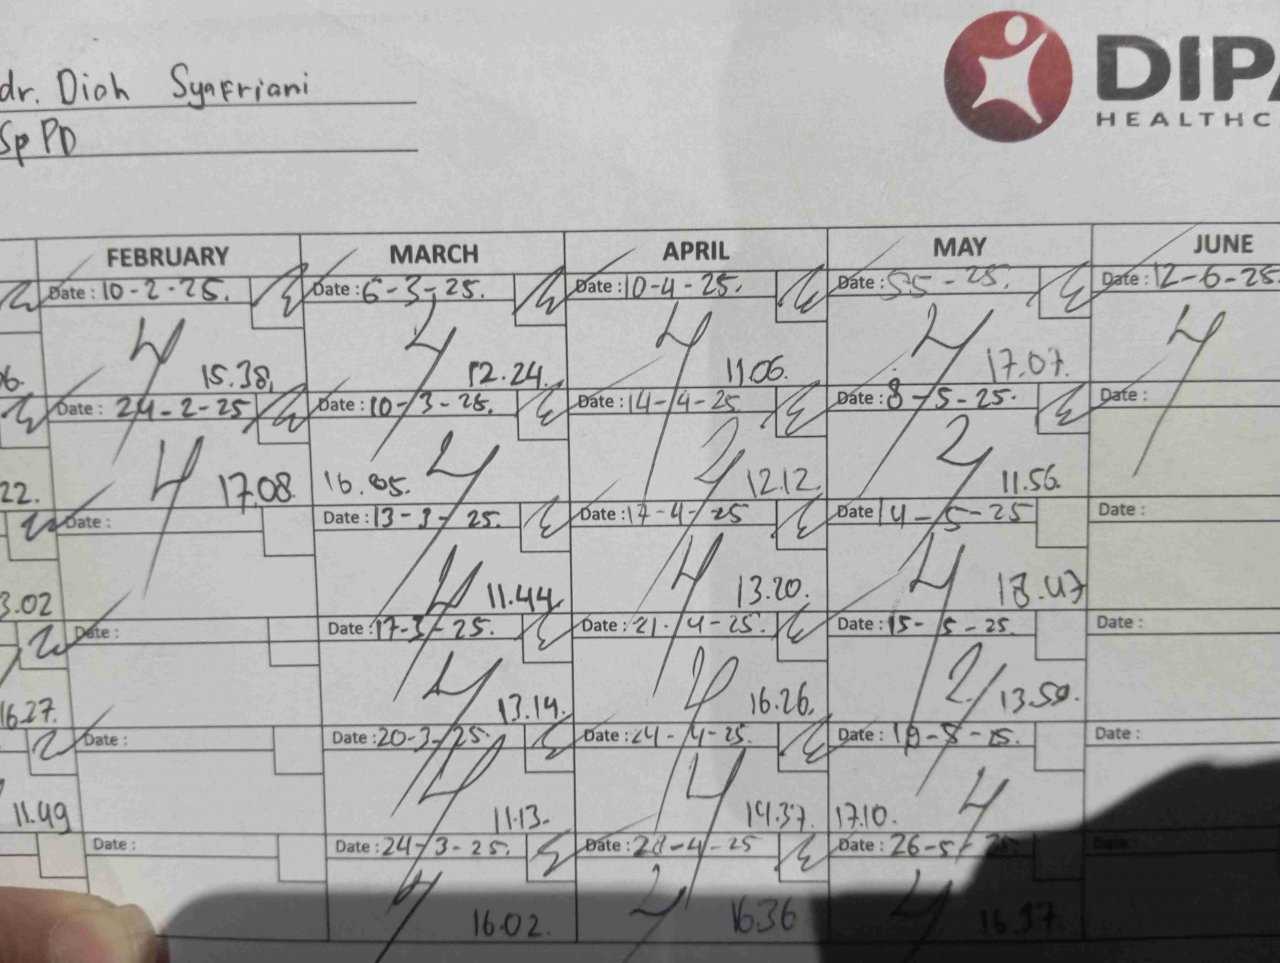 dr. Diah Syafriani
Sp PD
DIPA
HEALTHC
FEBRUARY MARCH APRIL MAY JUNE
Date : 10-2-25. Date : 6-3-25. Date : 10-4-25. Date : 5-5-25. Date : 12-6-25
06. 15.38. 12.24. 11.06. 17.07.
Date : 24-2-25 Date : 10-3-25. Date : 14-4-25 Date : 8-5-25. Date :
22. 17.08. 16.05. 12.12. 11.56.
Date : Date : 13-3-25. Date : 17-4-25 Date 14-5-25 Date :
3.02 11.44 13.20. 18.47
Date : Date : 17-3-25. Date : 21-4-25. Date : 15-5-25. Date :
16.27. 13.14. 16.26. 13.50.
Date : Date : 20-3-25. Date : 24-4-25. Date : Date :
11.49 11.13. 14.37. 17.10.
Date : Date : 24-3-25. Date : 28-4-25 Date : 26-5-25 Date :
16.02. 16.36 16.37.